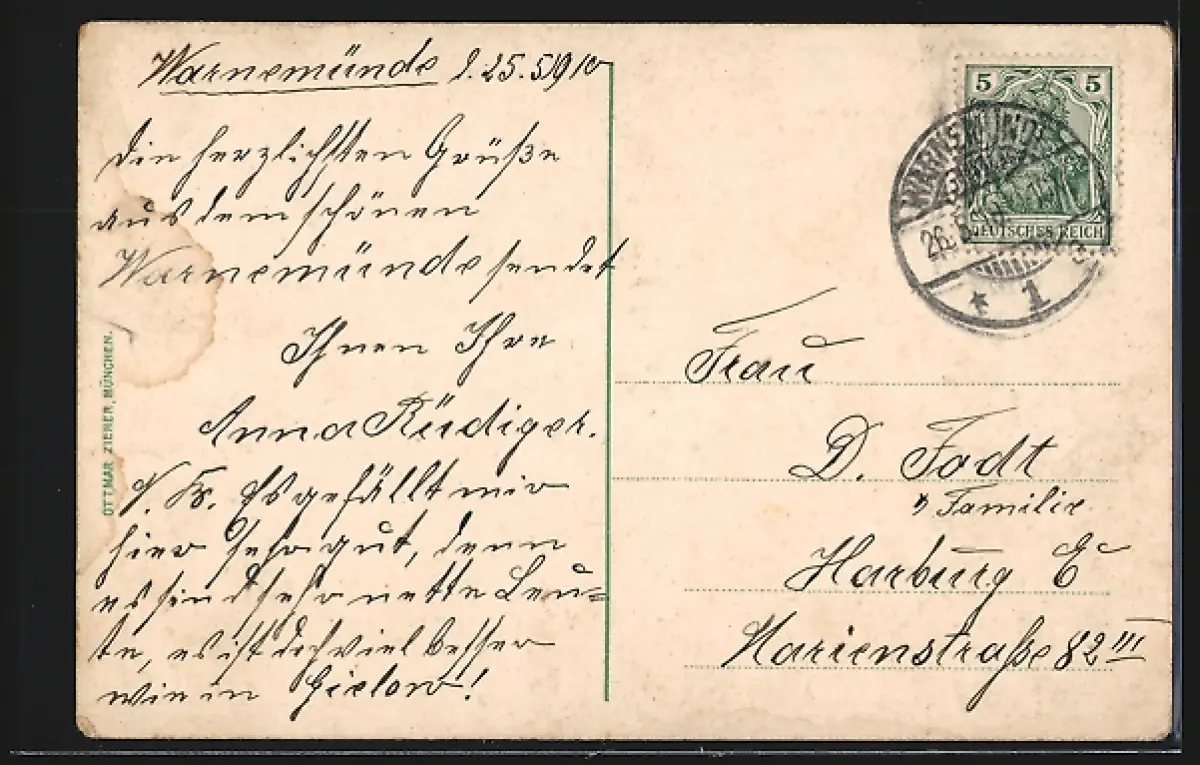 Warnemünde d. 25.5.1910
Die herzlichsten Grüße
aus dem schönen
Warnemünde sendet
Ihnen Ihre
Anna Rüdiger.
Es gefällt mir
hier sehr gut, denn
es sind sehr nette Leu-
te, es ist doch viel besser
wie in Gielow!
OTTMAR ZIEHER, MÜNCHEN.
5 5
DEUTSCHES REICH
WARNEMÜNDE
26.5.10
* 1
Frau
D. Jodt
u Familie
Harburg E
Marienstraße 82 III